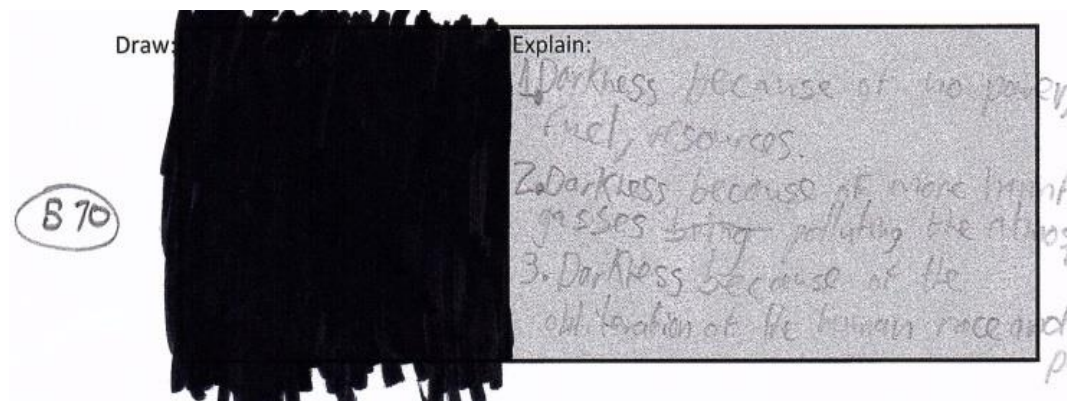 Draw:
Explain:
1. Darkness because of no power,
fuel, resources.
2. Darkness because of more
gasses being polluting the atmos
3. Darkness because of the
obliteration of the human race and
B 70